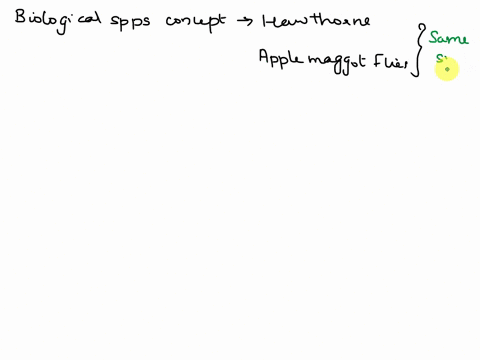 Biological spps concept → Hawthorne
Apple maggot flies { Same
s